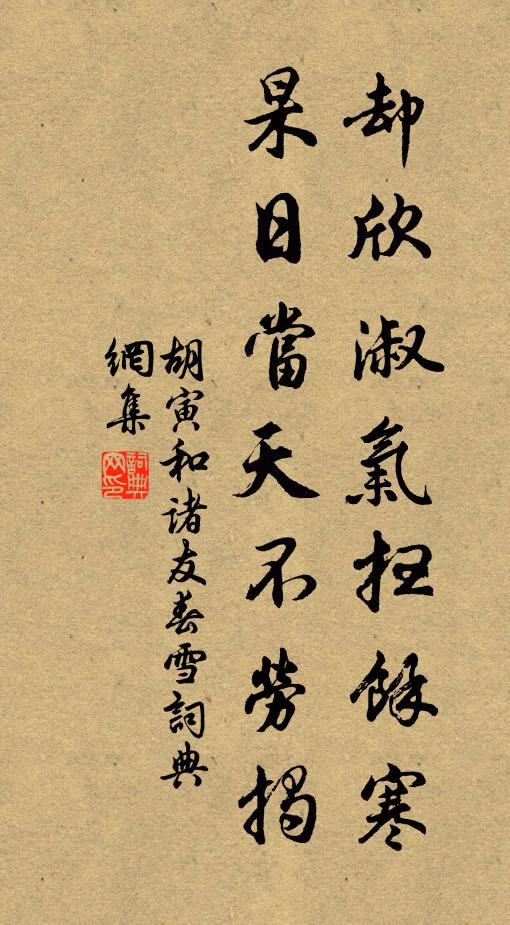 却欣淑氣扭餘寒
杲日當天不勞揭
胡寅和諸友春雪詞典
網集
詞典網印